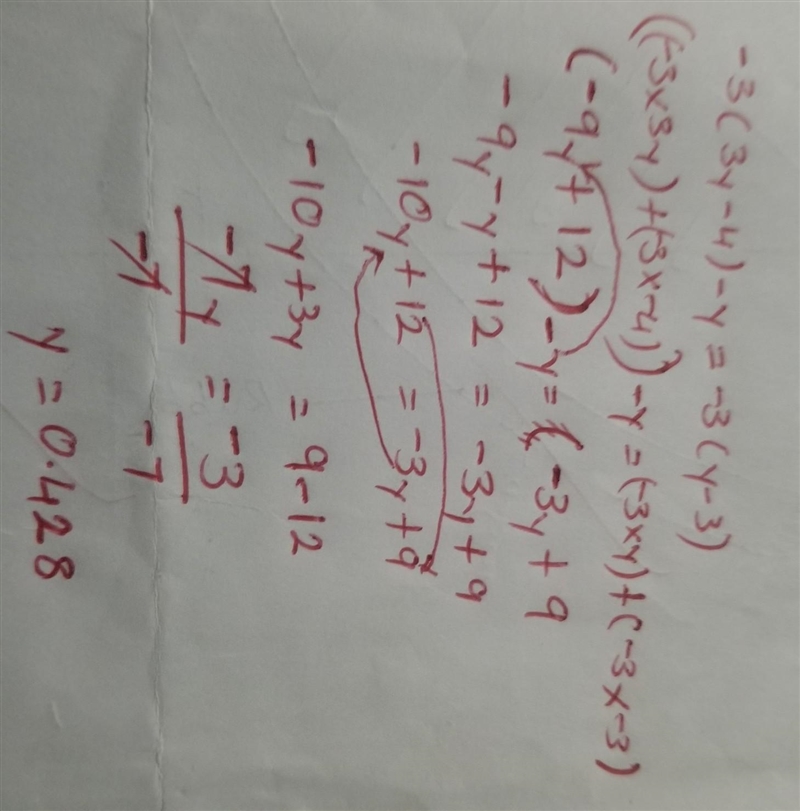 -3(3y-4)-y = -3(y-3)
((-3x3y)+(-3x-4))-y = (-3xy)+(-3x-3)
(-9y+12)-y = (-3y+9
-9y-y+12 = -3y+9
-10y+12 = -3y+9
-10y+3y = 9-12
-7y/-7 = -3/-7
y = 0.428